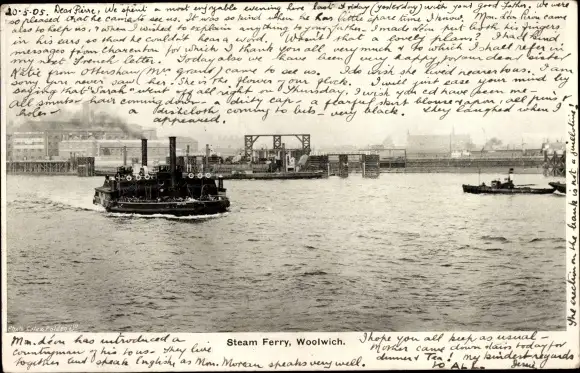 20-5-05. Dear Pierre, We spent a most enjoyable evening here last Friday (yesterday) with your good father. We were
so pleased that he came to see us. It was so kind when he has little spare time I know. Mon. Léon came
also to help us; & when I wished to explain anything to your father, I made Léon put both his fingers
in his ears, so that he couldn't hear a word. Wasn't that a lovely plan? I had kind
messages from Charenton for which I thank you all very much & to which I shall refer in
my next French letter. Today also we have been very happy for our dear sister
Kitie from (Mrs Grant) came to see us. I do wish she lived near us. I am
sorry you never saw her. She is the flower of our flock. I will just ease your mind by
saying that "Sarah" went off all right on Thursday. I wish you cd have seen me—
all smuts - hair coming down - a dirty cap - a fearful skirt blouse & apron, all pins &
holes - a dishcloth coming to bits - very black. They laughed when I
appeared.
The erection on the bank is not a swing!
Steam Ferry, Woolwich.
Mon. Léon has introduced a
countryman of his to us - they live
together and speak English, as Mon. Moreau speaks very well.
I hope you all keep as usual -
Mother came down stairs today for
dinner & Tea! my kindest regards
to all.